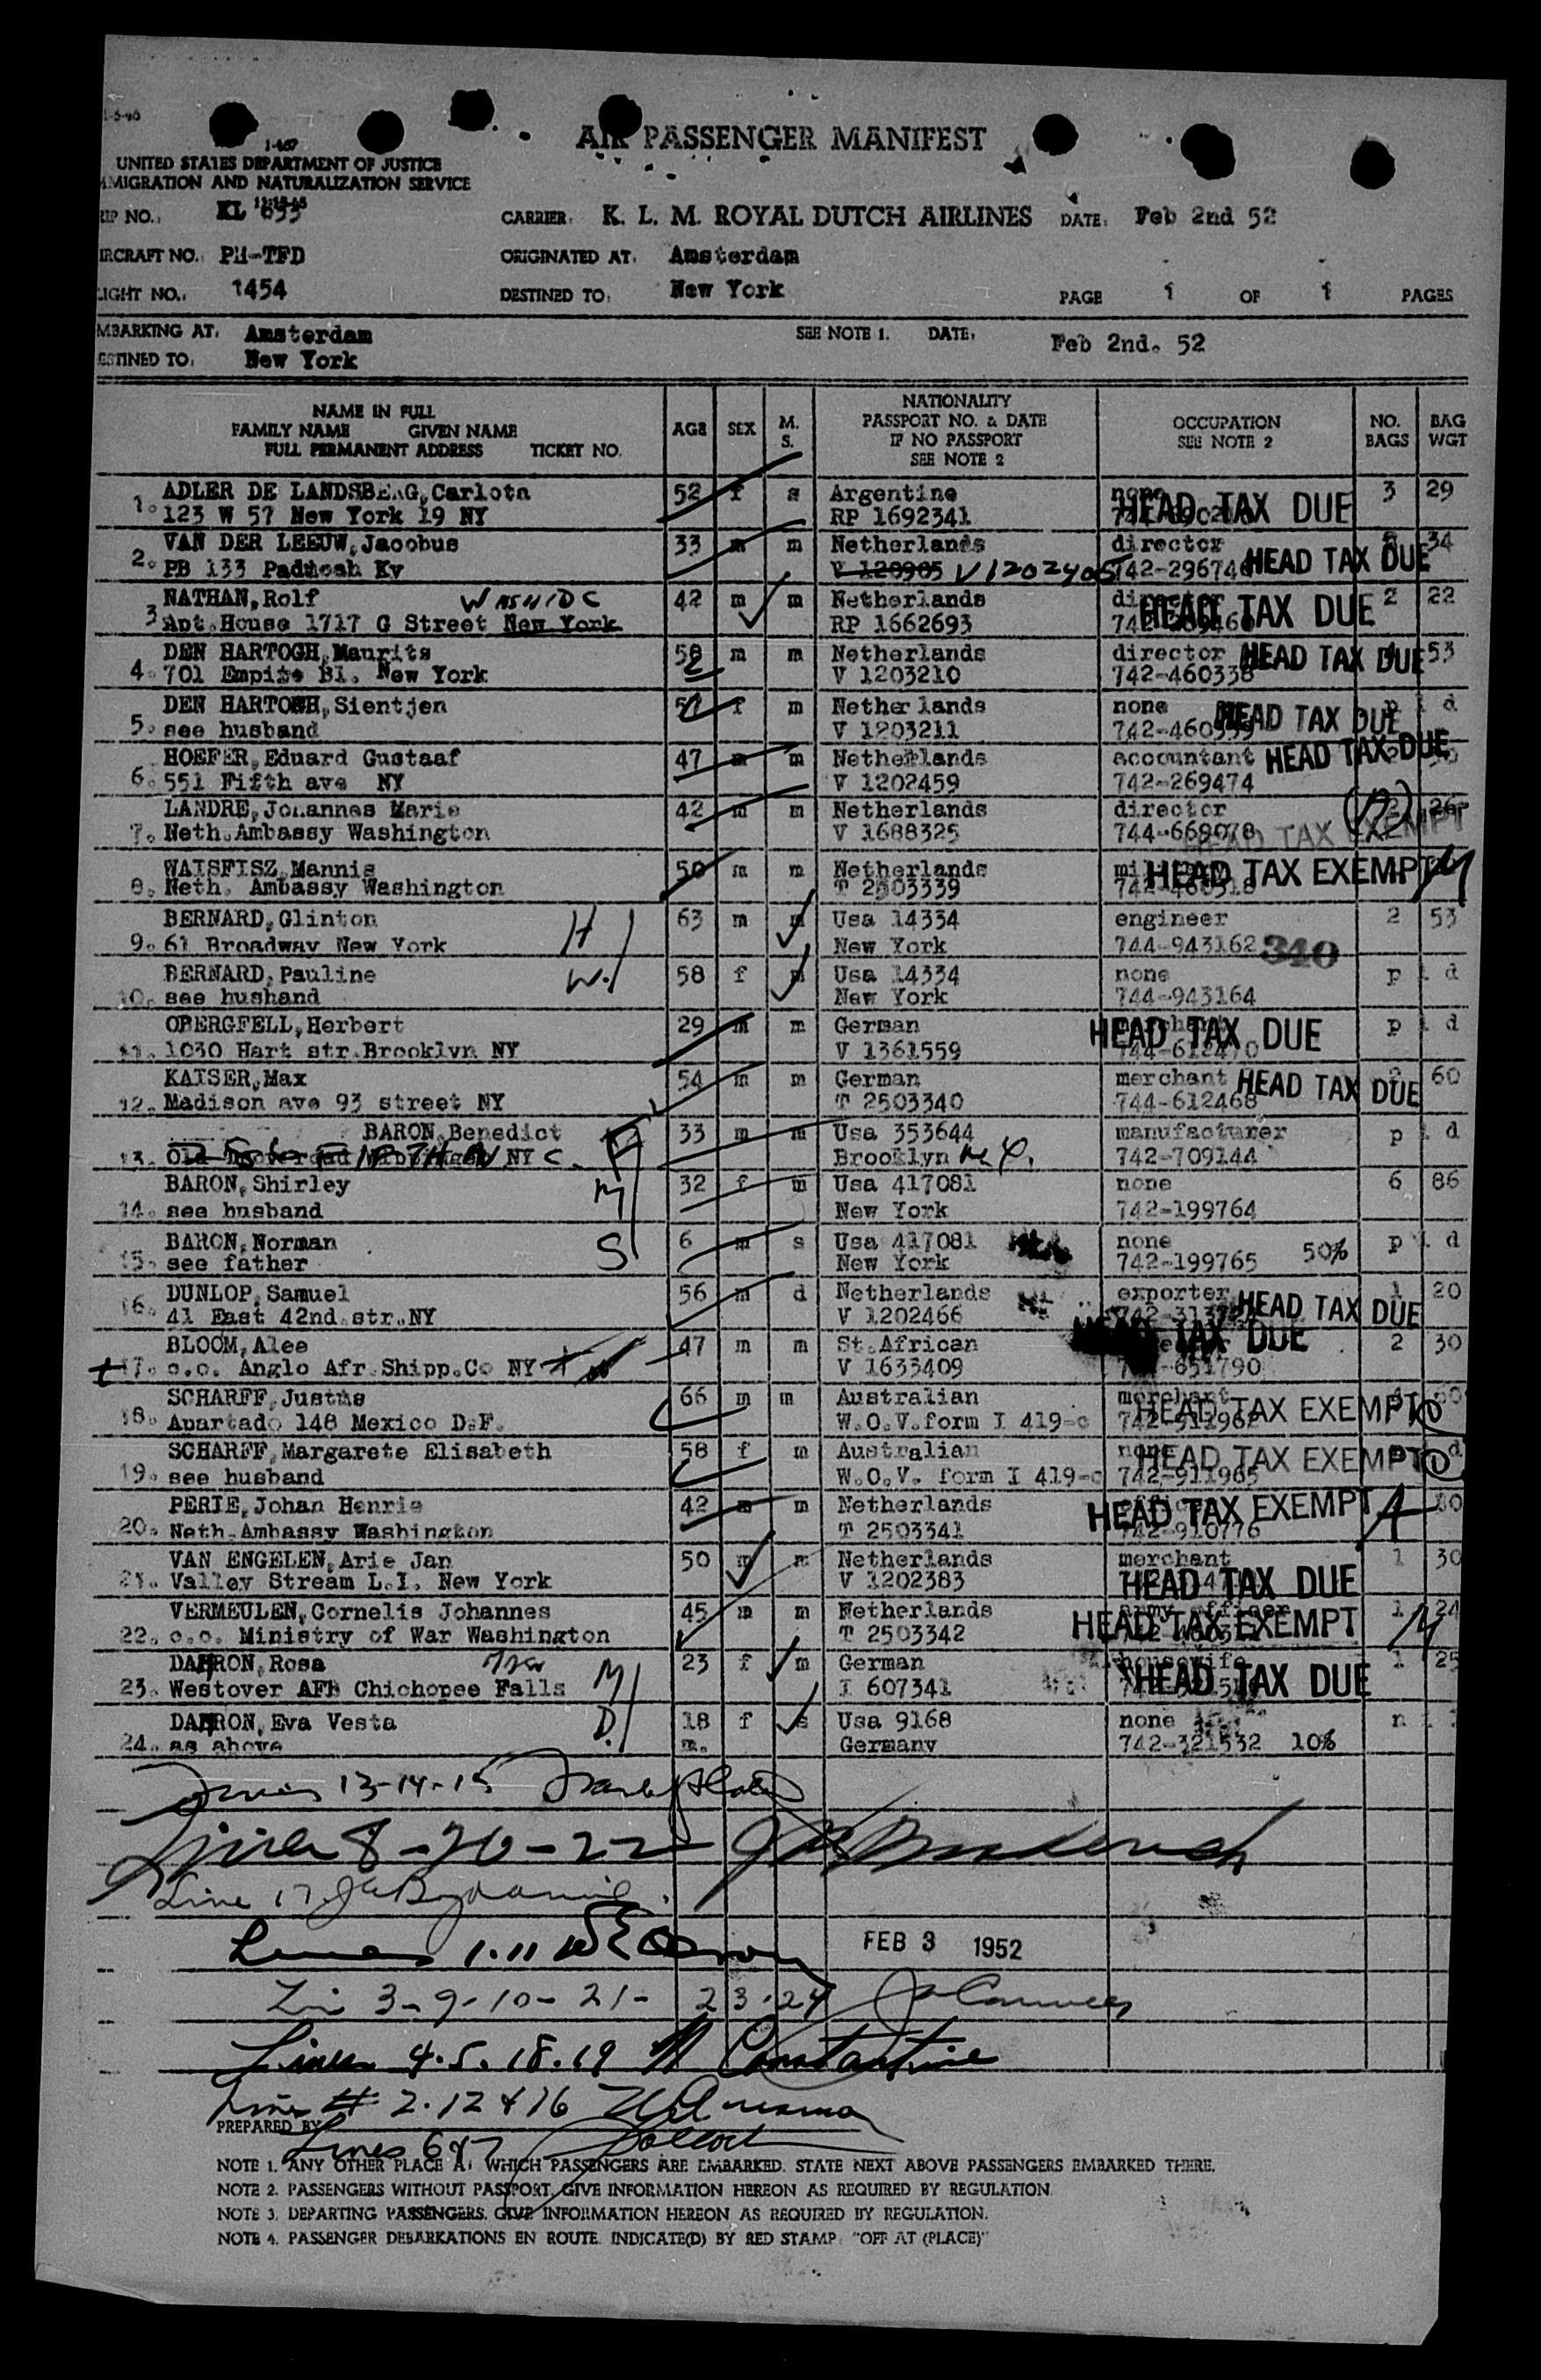 1-5-46
AIR PASSENGER MANIFEST
1-467
UNITED STATES DEPARTMENT OF JUSTICE
MMIGRATION AND NATURALIZATION SERVICE
RIP NO.: KL 633 CARRIER: K. L. M. ROYAL DUTCH AIRLINES DATE: Feb 2nd 52
IRCRAFT NO.: PH-TFD ORIGINATED AT: Amsterdam
LIGHT NO.: 1454 DESTINED TO: New York PAGE 1 OF 1 PAGES
MBARKING AT: Amsterdam SEE NOTE 1. DATE: Feb 2nd. 52
ESTINED TO: New York
NAME IN FULL
FAMILY NAME GIVEN NAME
FULL PERMANENT ADDRESS TICKET NO.
AGE SEX M. S.
NATIONALITY
PASSPORT NO. & DATE
IF NO PASSPORT
SEE NOTE 2
OCCUPATION
SEE NOTE 2
NO. BAGS BAG WGT
ADLER DE LANDSBERG,Carlota 52 f s Argentine none 3 29
1. 123 W 57 New York 19 NY RP 1692341 HEAD TAX DUE
VAN DER LEEUW,Jacobus 33 m m Netherlands director 34
2. PB 133 Paducah Ky V 120905 V1202405 742-296746 HEAD TAX DUE
NATHAN,Rolf WASH DC 42 m m Netherlands 2 22
3 Apt.House 1717 G Street New York RP 1662693 HEAD TAX DUE
DEN HARTOGH,Maurits 58 m m Netherlands director HEAD TAX DUE 53
4. 701 Empire Bl. New York V 1203210 742-460338
DEN HARTOGH,Sientjen 57 f m Netherlands none p l d
5. see husband V 1203211 742-460339 HEAD TAX DUE
HOEFER,Eduard Gustaaf 47 m m Netherlands accountant HEAD TAX DUE
6. 551 Fifth ave NY V 1202459 742-269474
LANDRE,Johannes Marie 42 m m Netherlands director 2 26
7. Neth.Ambassy Washington V 1688325 744-669078 HEAD TAX EXEMPT
WAISFISZ,Mannis 50 m m Netherlands HEAD TAX EXEMPT M
8. Neth. Ambassy Washington T 2503339
BERNARD,Glinton H 63 m m Usa 14334 engineer 2 53
9. 61 Broadway New York New York 744-943162 340
BERNARD,Pauline W. 58 f m Usa 14334 none p l d
10. see husband New York 744-943164
OBERGFELL,Herbert 29 m m German p l d
11. 1030 Hart str.Brooklyn NY V 1361559 HEAD TAX DUE
KAISER,Max 54 m m German merchant HEAD TAX DUE 60
12. Madison ave 93 street NY T 2503340 744-612468
BARON,Benedict F 33 m m Usa 353644 manufacturer p l d
13. NY C. Brooklyn N.Y. 742-709144
BARON,Shirley M 32 f m Usa 417081 none 6 86
14. see husband New York 742-199764
BARON,Norman S 6 m s Usa 417081 none 50% p l d
15. see father New York 742-199765
DUNLOP,Samuel 56 m d Netherlands exporter 1 20
16. 41 East 42nd str.NY V 1202466 HEAD TAX DUE
BLOOM,Alee 47 m m St.African HEAD TAX DUE 2 30
17. c.o. Anglo Afr.Shipp.Co NY V 1633409
SCHARFF,Justus 66 m m Australian merchant
18. Apartado 148 Mexico D.F. W.O.V.form I 419-c HEAD TAX EXEMPT D
SCHARFF,Margarete Elisabeth 58 f m Australian none
19. see husband W.O.V. form I 419-c 742-911965 HEAD TAX EXEMPT D
PERIE,Johan Henrie 42 m m Netherlands HEAD TAX EXEMPT A 30
20. Neth.Ambassy Washington T 2503341 742-910776
VAN ENGELEN,Arie Jan 50 m m Netherlands merchant 1 30
21. Valley Stream L.I. New York V 1202383 HEAD TAX DUE
VERMEULEN,Cornelis Johannes 45 m m Netherlands army officer 1 24
22. c.o. Ministry of War Washington T 2503342 HEAD TAX EXEMPT M
DAHRON,Rosa M 23 f m German housewife 1 25
23. Westover AFB Chichopee Falls I 607341 HEAD TAX DUE
DAHRON,Eva Vesta D. 18 f s Usa 9168 none
24. as above m. Germany 742-321532 10%
13-14-15
Lines 8-20-22
Line 17
Lines 1.11
FEB 3 1952
Lin 3-9-10-21-23.24
Lines 4.5.18.19 Constantine
Lines # 2.12 & 16
PREPARED BY
Lines 6&7
NOTE 1. ANY OTHER PLACE AT WHICH PASSENGERS ARE EMBARKED. STATE NEXT ABOVE PASSENGERS EMBARKED THERE.
NOTE 2. PASSENGERS WITHOUT PASSPORT, GIVE INFORMATION HEREON AS REQUIRED BY REGULATION.
NOTE 3. DEPARTING PASSENGERS. GIVE INFORMATION HEREON AS REQUIRED BY REGULATION.
NOTE 4. PASSENGER DEBARKATIONS EN ROUTE. INDICATE(D) BY RED STAMP: "OFF AT (PLACE)"